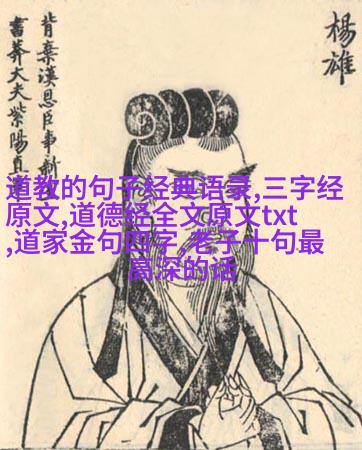 楊雄
背棄漢恩臣事新
書莽大夫紫陽
道教的句子经典语录,三字经
原文,道德经全文原文txt
,道家金句四字,老子十句最
高深的话